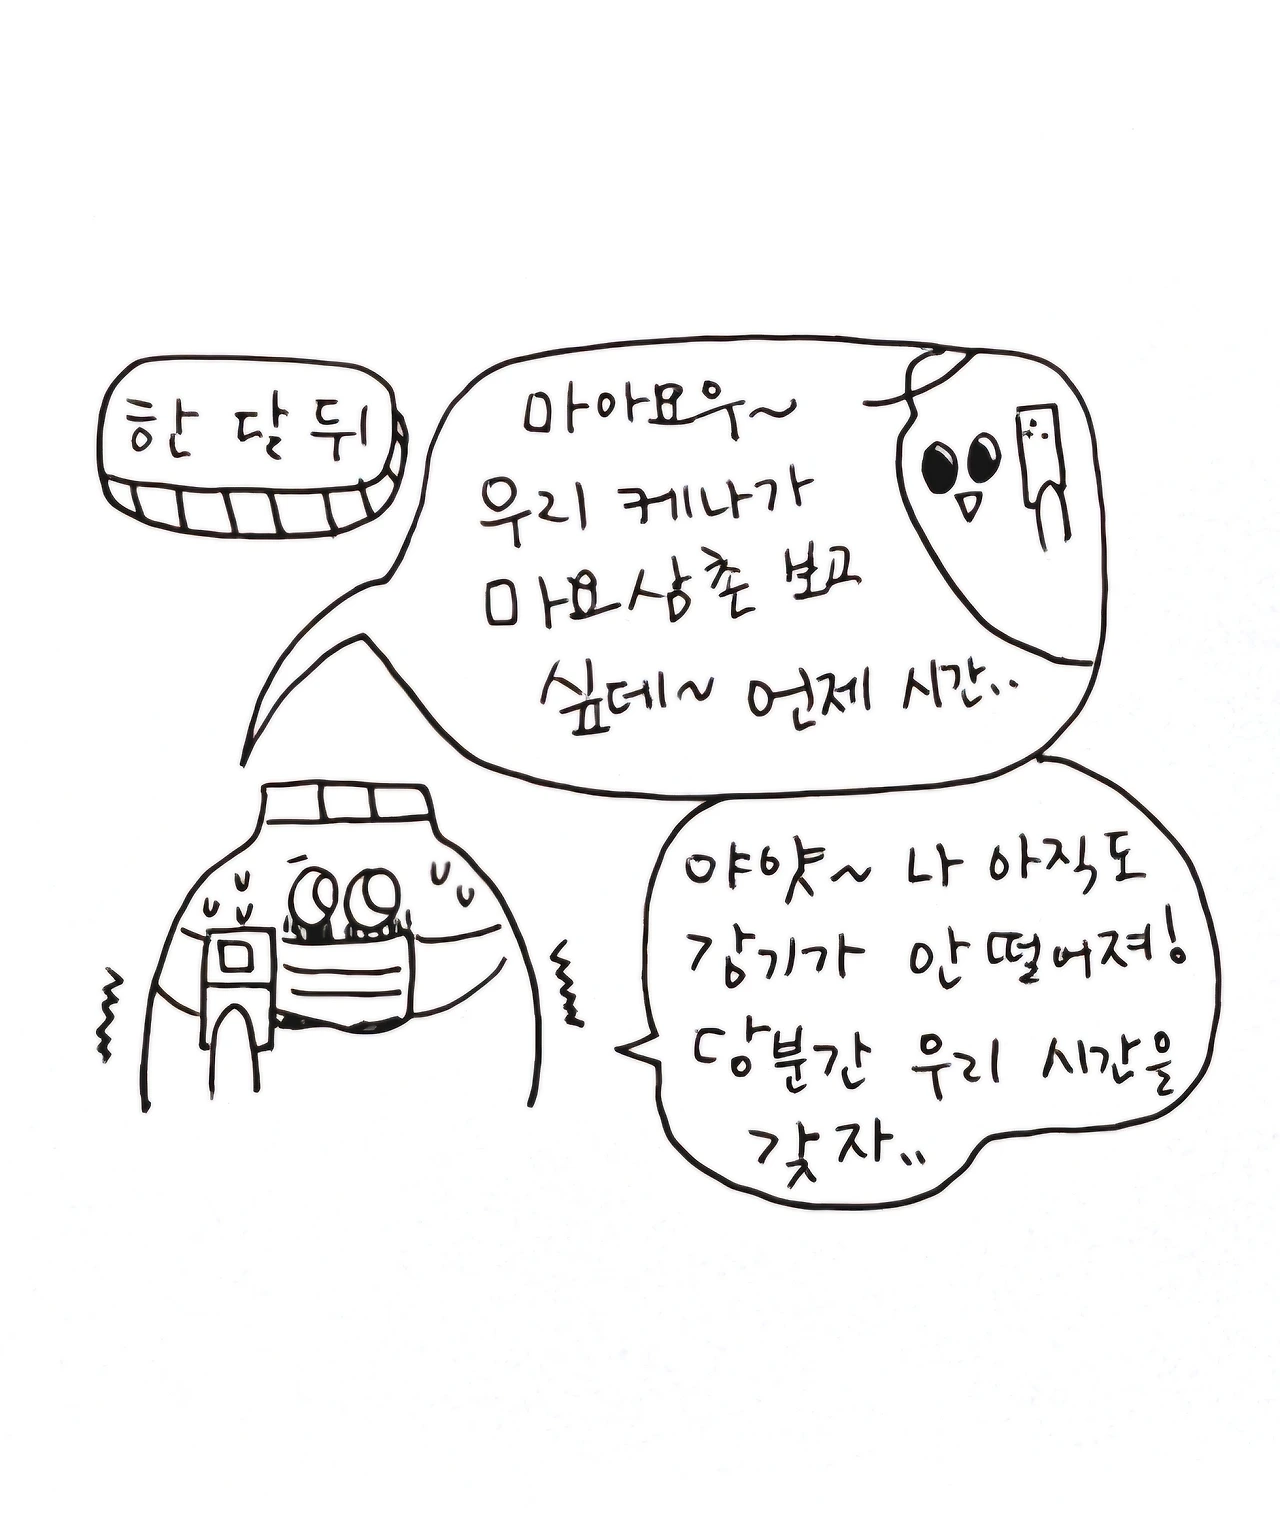 한 달 뒤
마아요우~
우리 케나가
마요삼촌 보고
싶데~ 언제 시간..
야얏~ 나 아직도
감기가 안 떨어져!
당분간 우리 시간을
갖자..